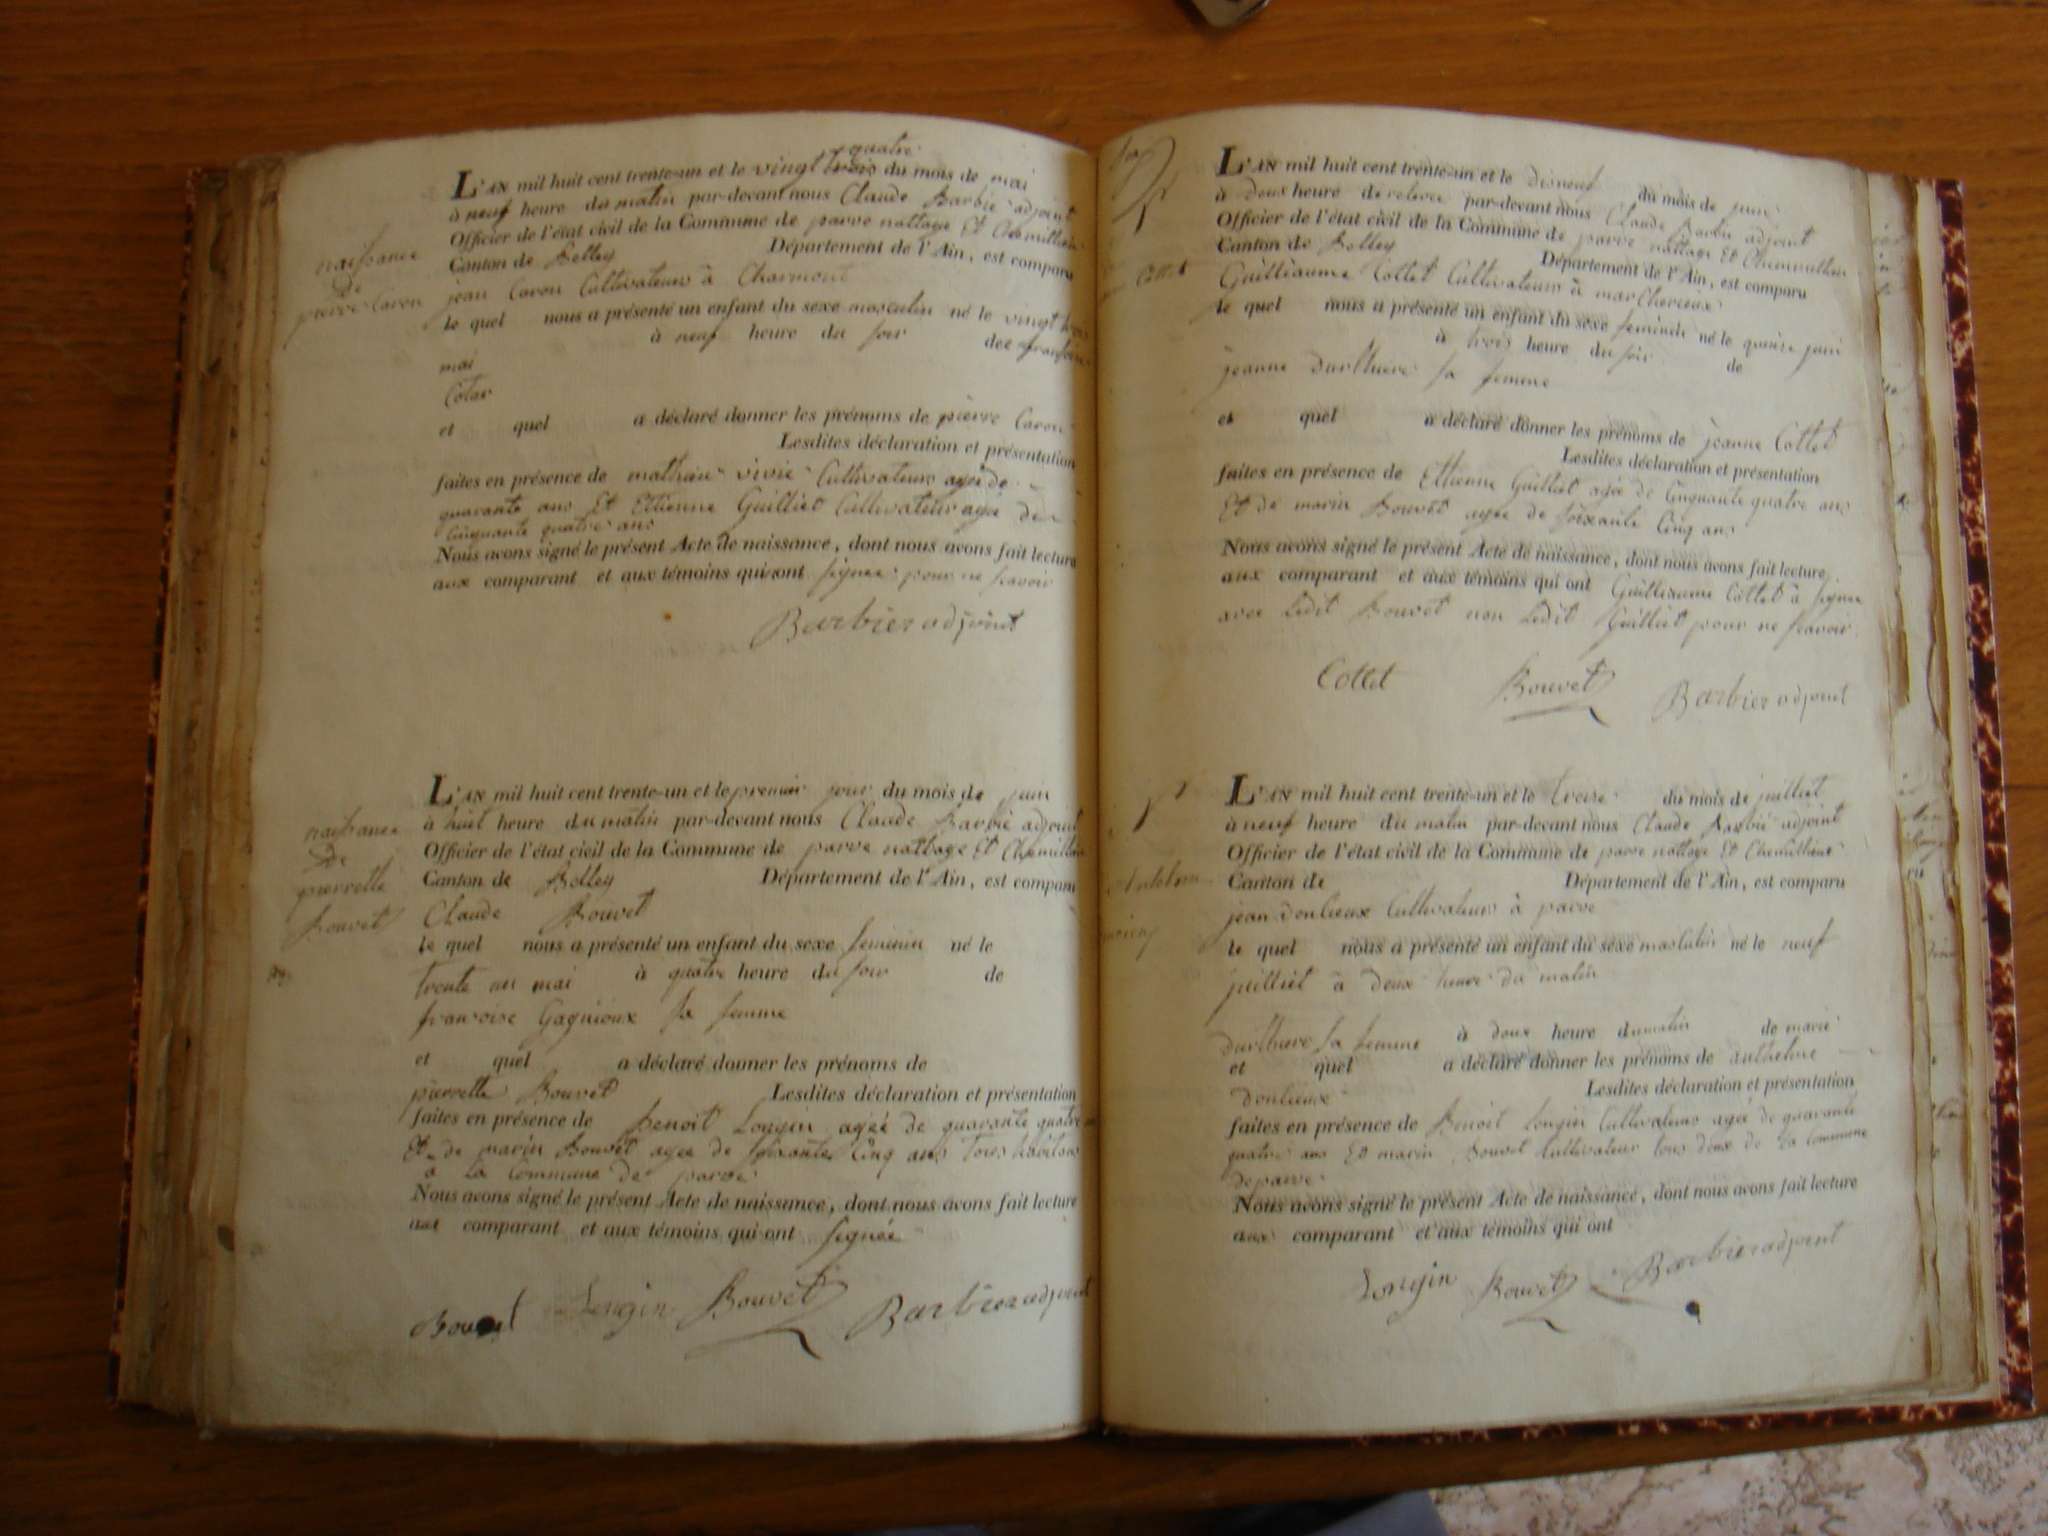 quatre
L'AN mil huit cent trente-un et le vingt trois du mois de mai
à neuf heure du matin par-devant nous Claude Barbié adjoint
Officier de l'état civil de la Commune de parve nattage Et Chemillieu
Canton de Belley Département de l'Ain, est comparu
jean Caron Cultivateur à Charmont
le quel nous a présenté un enfant du sexe masculin né le vingt trois
à neuf heure du soir de françoise
mai
Cotar
et quel a déclaré donner les prénoms de pierre Caron
Lesdites déclaration et présentation
faites en présence de mathieu vivié Cultivateur agée de
quarante ans Et Etienne Guilliet Cultivateur agée de
Cinquante quatre ans
Nous avons signé le présent Acte de naissance, dont nous avons fait lecture
aux comparant et aux témoins qui ont signer pour ne scavoir
Barbier adjoint
naissance
de
pierre Caron
L'AN mil huit cent trente-un et le premier jour du mois de juin
à huit heure du matin par-devant nous Claude Barbié adjoint
Officier de l'état civil de la Commune de parve nattage Et Chemillieu
Canton de Belley Département de l'Ain, est comparu
Claude Bouvet
le quel nous a présenté un enfant du sexe feminin né le
trente un mai à quatre heure du soir de
françoise Gagnioux sa femme
et quel a déclaré donner les prénoms de
pierrette Bouvet Lesdites déclaration et présentation
faites en présence de Benoit Longin agée de quarante quatre
Et de marin Bouvet agée de soixante Cinq ans tous habitans
à la Commune de parve
Nous avons signé le présent Acte de naissance, dont nous avons fait lecture
aux comparant et aux témoins qui ont signée
Bouvet Longin Bouvet Barbier adjoint
naissance
De
pierrette
Bouvet
L'AN mil huit cent trente-un et le disneuf du mois de juin
à deux heure de relevée par-devant nous Claude Barbié adjoint
Officier de l'état civil de la Commune de parve nattage Et Chemillieu
Canton de Belley Département de l'Ain, est comparu
Guilliaume Cottet Cultivateur à marchereux
le quel nous a présenté un enfant du sexe feminin né le quinze juin
à trois heure du soir de
jeanne Durlhiere sa femme
et quel a déclaré donner les prénoms de jeanne Cottet
Lesdites déclaration et présentation
faites en présence de Ettienne Guilliet agée de Cinquante quatre ans
Et de marin Bouvet agée de soixante Cinq ans
Nous avons signé le présent Acte de naissance, dont nous avons fait lecture
aux comparant et aux témoins qui ont Guilliaume Cottet à signer
avec ledit Bouvet non ledit Guilliet pour ne scavoir
Cottet Bouvet Barbier adjoint
Cottet
L'AN mil huit cent trente-un et le treize du mois de juilliet
à neuf heure du matin par-devant nous Claude Barbié adjoint
Officier de l'état civil de la Commune de parve nattage Et Chemillieux
Canton de Département de l'Ain, est comparu
jean Donlieux Cultivateur à parve
le quel nous a présenté un enfant du sexe masculin né le neuf
juilliet à deux heure du matin
à deux heure du matin de marie
Durlhiere sa femme
et quel a déclaré donner les prénoms de anthelme
Donlieux Lesdites déclaration et présentation
faites en présence de Benoit Longin Cultivateur agée de quarante
quatre ans Et marin Bouvet Cultivateur tous deux de la Commune
de parve
Nous avons signé le présent Acte de naissance, dont nous avons fait lecture
aux comparant et aux témoins qui ont
Longin Bouvet Barbier adjoint